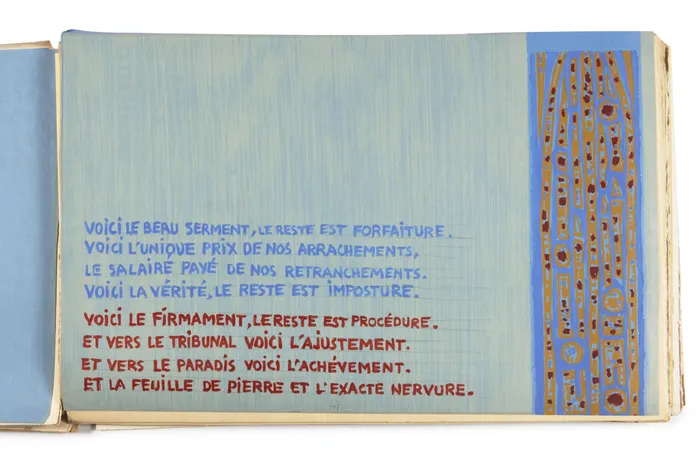 VOiCi LE BEAU SERMENT, LE RESTE EST FORFAITURE.
VOiCi L'UNiQUE PRiX DE NOS ARRACHEMENTS,
LE SALAiRE PAYÉ DE NOS RETRANCHEMENTS.
VOiCi LA VÉRiTÉ, LE RESTE EST IMPOSTURE.
VOiCi LE FiRMAMENT, LE RESTE EST PROCÉDURE.
ET VERS LE TRiBUNAL VOiCi L'AJUSTEMENT.
ET VERS LE PARADiS VOiCi L'ACHÉVEMENT.
ET LA FEUiLLE DE PiERRE ET L'EXACTE NERVURE.